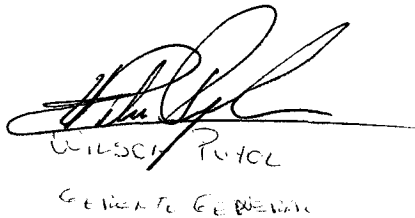 WILSON PUYOL
GERENTE GENERAL